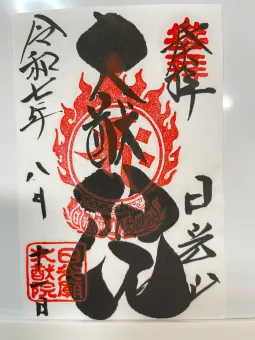 奉拝
日光山
大猷院
令和七年
八月
十一日
日光廟
大猷院